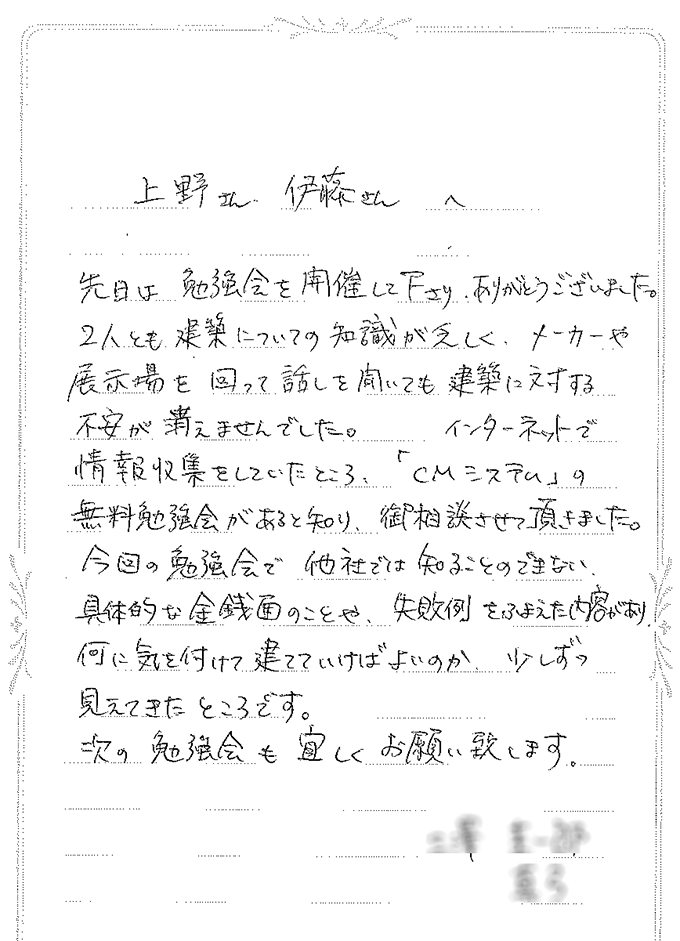 上野さん 伊藤さん へ
先日は 勉強会を開催して下さり、ありがとうございました。
2人とも建築についての知識が乏しく、メーカーや
展示場を回って話しを聞いても建築に対する
不安が消えませんでした。 インターネットで
情報収集をしていたところ、「CMシステム」の
無料勉強会があると知り、御相談させて頂きました。
今回の勉強会で 他社では知ることのできない、
具体的な金銭面のことや、失敗例をふまえた内容があり、
何に気を付けて建てていけばよいのか、少しずつ
見えてきたところです。
次の勉強会も宜しくお願い致します。